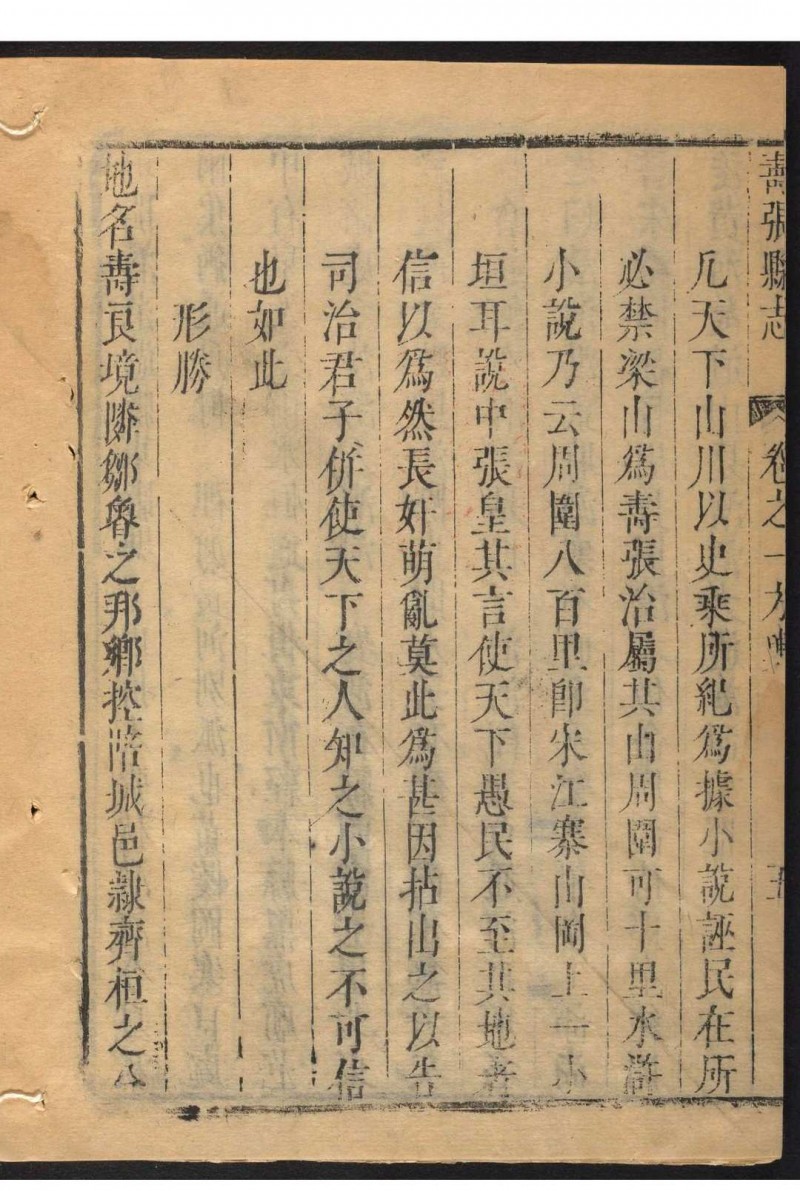 壽張縣志 卷之一 方輿 五
凢天下山川以史乘所紀爲據小說誣民在所
必禁梁山爲壽張治屬其山周圍可十里水滸
小說乃云周圍八百里卽宋江寨山岡上一小
垣耳說中張皇其言使天下愚民不至其地者
信以爲然長奸萌亂莫此爲甚因拈出之以告
司治君子併使天下之人知之小說之不可信
也如此
形勝
地名壽良境隣鄒魯之邦鄉控陪城邑隷齊桓之公